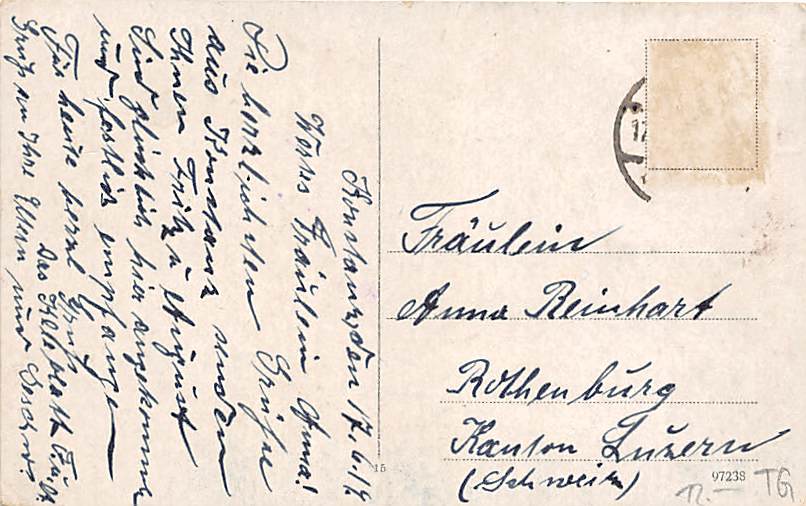 Konstanz, den 17.6.19
Werte Fräulein Anna!
Die herzlichsten Grüße
aus Konstanz senden
Ihnen Fritz u August
Sind glücklich hier angekommen
und festlich empfangen
Für heute herzl Gruß
Das Kleeblatt F. u. A.
Gruß an Ihre Eltern und
Fräulein
Anna Reinhart
Rothenburg
Kanton Luzern
(Schweiz)
15
97238
12.— TG
17